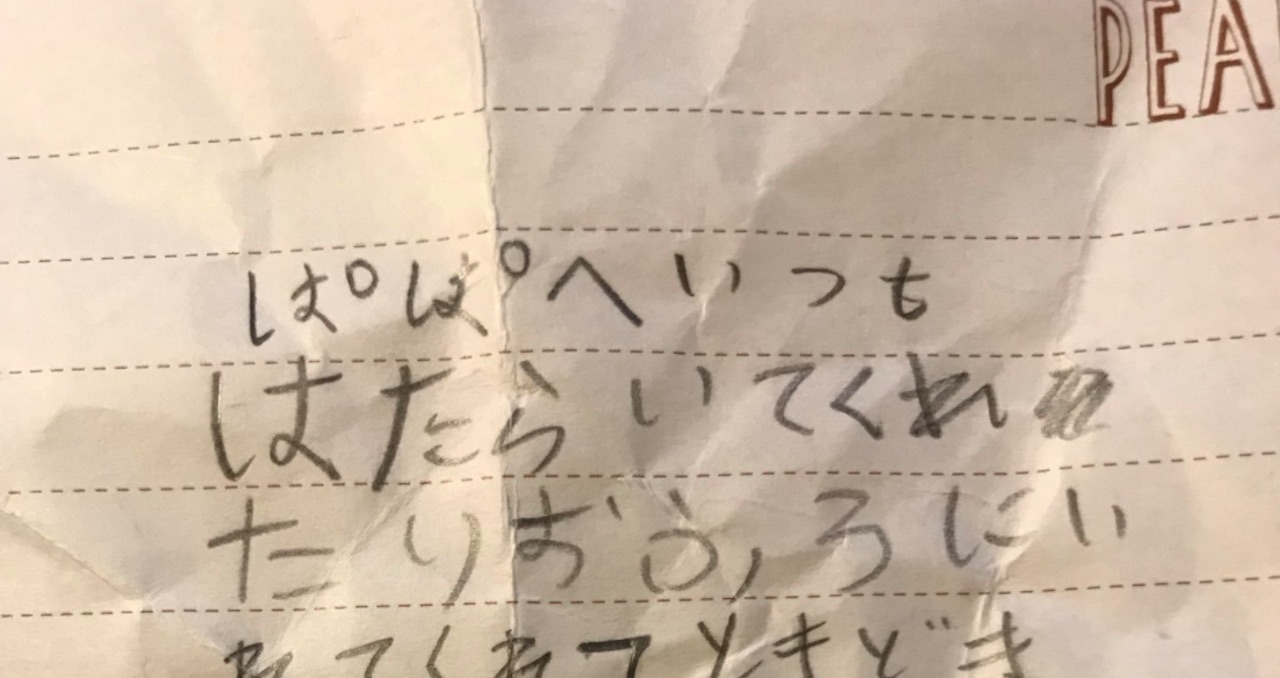 PEA
ぱぱへいつも
はたらいてくれ
たりおふろにい
れてくれてときどき